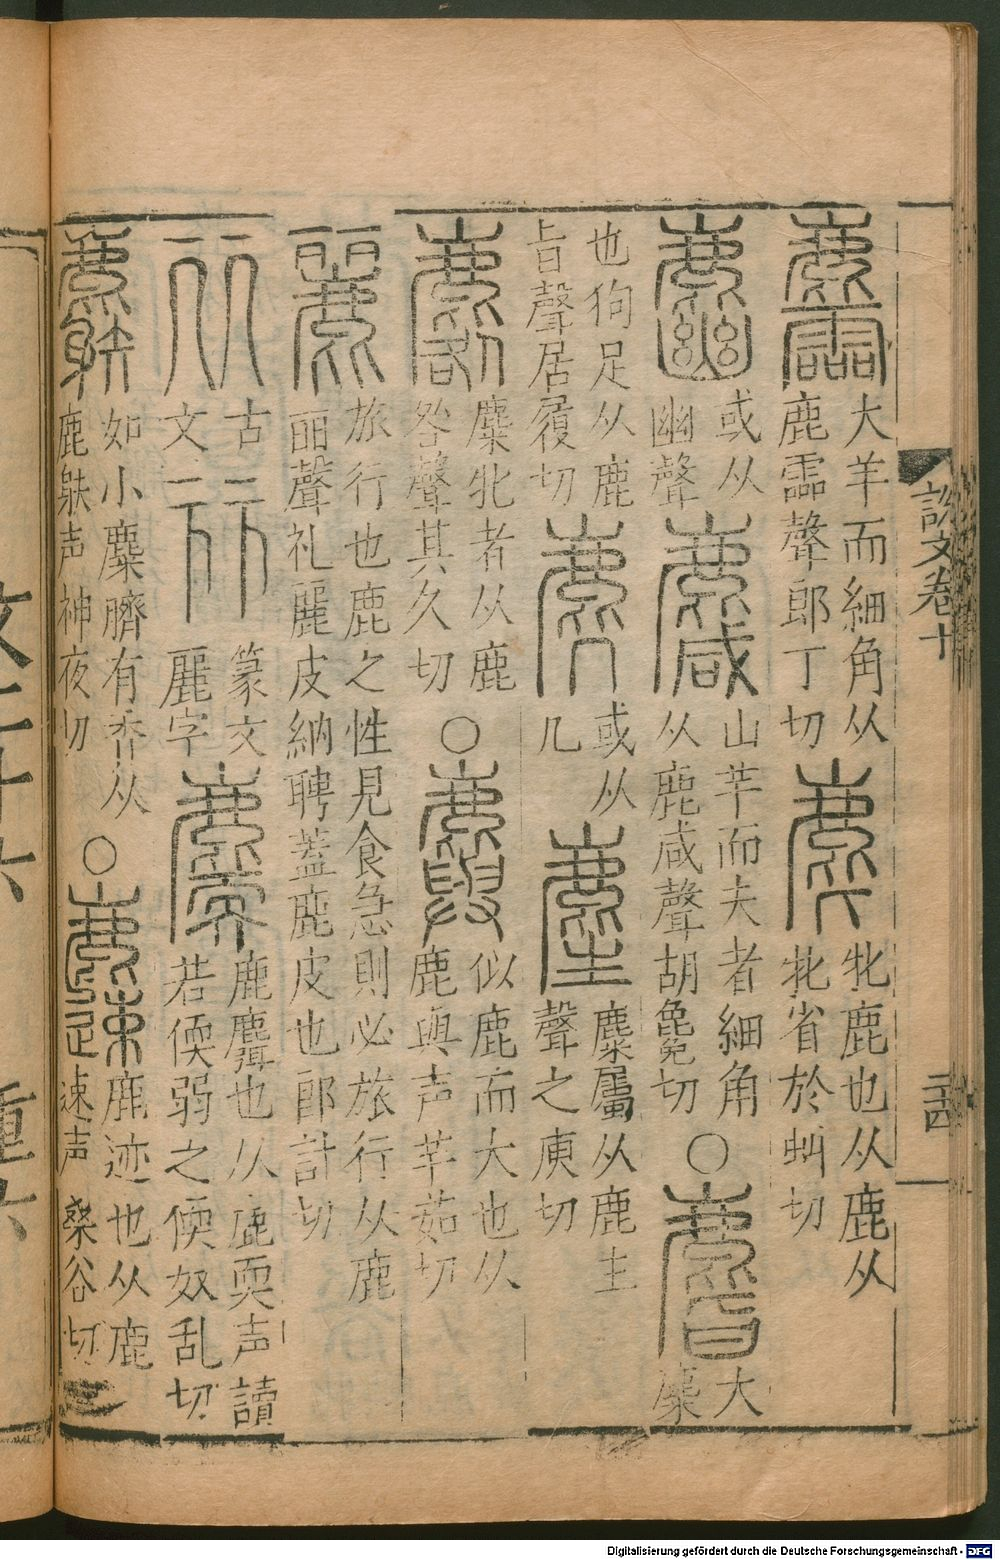 說文卷十
二四
大羊而細角从
鹿霝聲郎丁切
牝鹿也从鹿从
牝省於虯切
或从
幽聲
山羊而大者細角
从鹿咸聲胡毚切
〇
大麋
也狗足从鹿
旨聲居履切
或从
几
麋屬从鹿主
聲之庾切
麋牝者从鹿
咎聲其久切
〇
似鹿而大也从
鹿與声羊茹切
旅行也鹿之性見食急則必旅行从鹿
丽聲礼麗皮納聘蓋鹿皮也郎計切
古
文
篆文
麗字
鹿麛也从鹿耎声讀
若偄弱之偄奴乱切
如小麋臍有香从
鹿䠶声神夜切
〇
鹿迹也从鹿
速声桑谷切
Digitalisierung gefördert durch die Deutsche Forschungsgemeinschaft - DFG